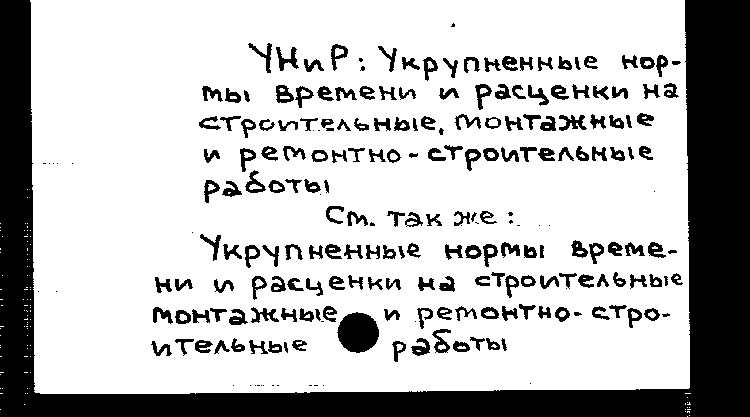 УНиР: Укрупненные нор-
мы времени и расценки на
строительные, монтажные
и ремонтно-строительные
работы
См. также:
Укрупненные нормы време-
ни и расценки на строительные
монтажные и ремонтно-стро-
ительные работы